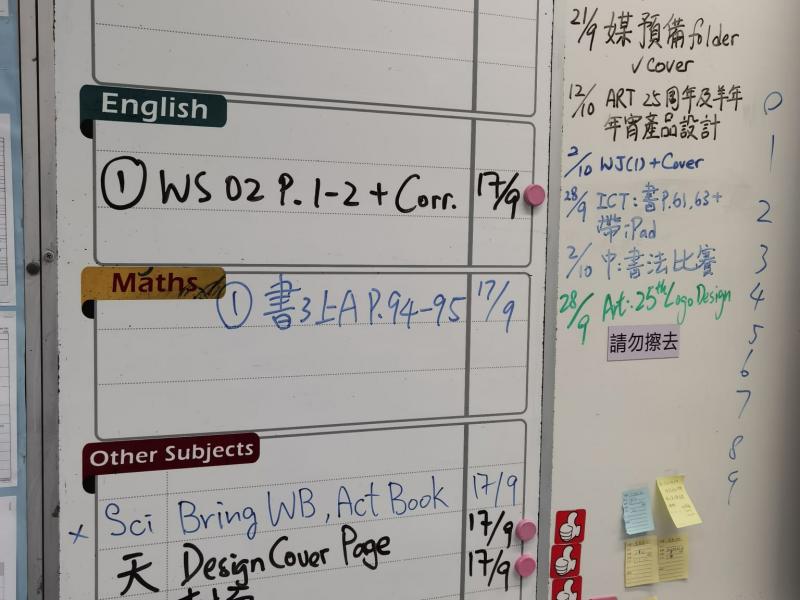 English
① WS 02 P.1-2 + Corr. 17/9
Maths
① 書3上A P.94-95 17/9
Other Subjects
× Sci Bring WB, Act Book 17/9
天 Design Cover Page 17/9
17/9
21/9 媒 預備 folder
✓ cover
12/10 ART 25周年及羊年
年宵產品設計
2/10 WJ(1) + Cover
28/9 ICT: 書P.61,63 +
帶iPad
2/10 中: 書法比賽
28/9 Art: 25th Logo Design
請勿擦去
0
1
2
3
4
5
6
7
8
9